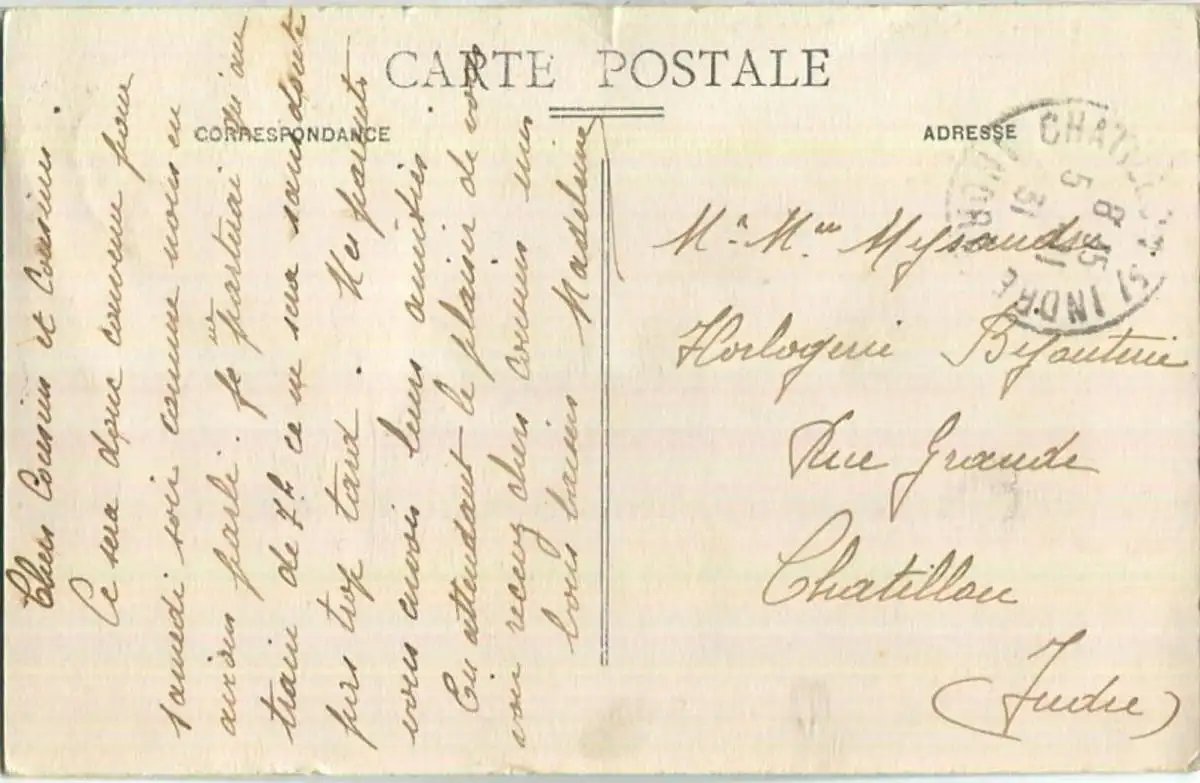 CARTE POSTALE
CORRESPONDANCE
ADRESSE
Chers Cousins et Cousines
Ce sera donc convenu pour
samedi soir comme nous en
avions parlé. Je ne partirai qu'au
train de 7h ce ne sera sans doute
pas trop tard. Mes parents
vous envois leurs amitiés
En attendant le plaisir de vous
voir recevez chers cousins mes
bons baisers Madeleine
Mr. Mme
Horlogerie Bijouterie
Rue Grande
Chatillon
(Indre)
5 8 45
31 11
INDRE